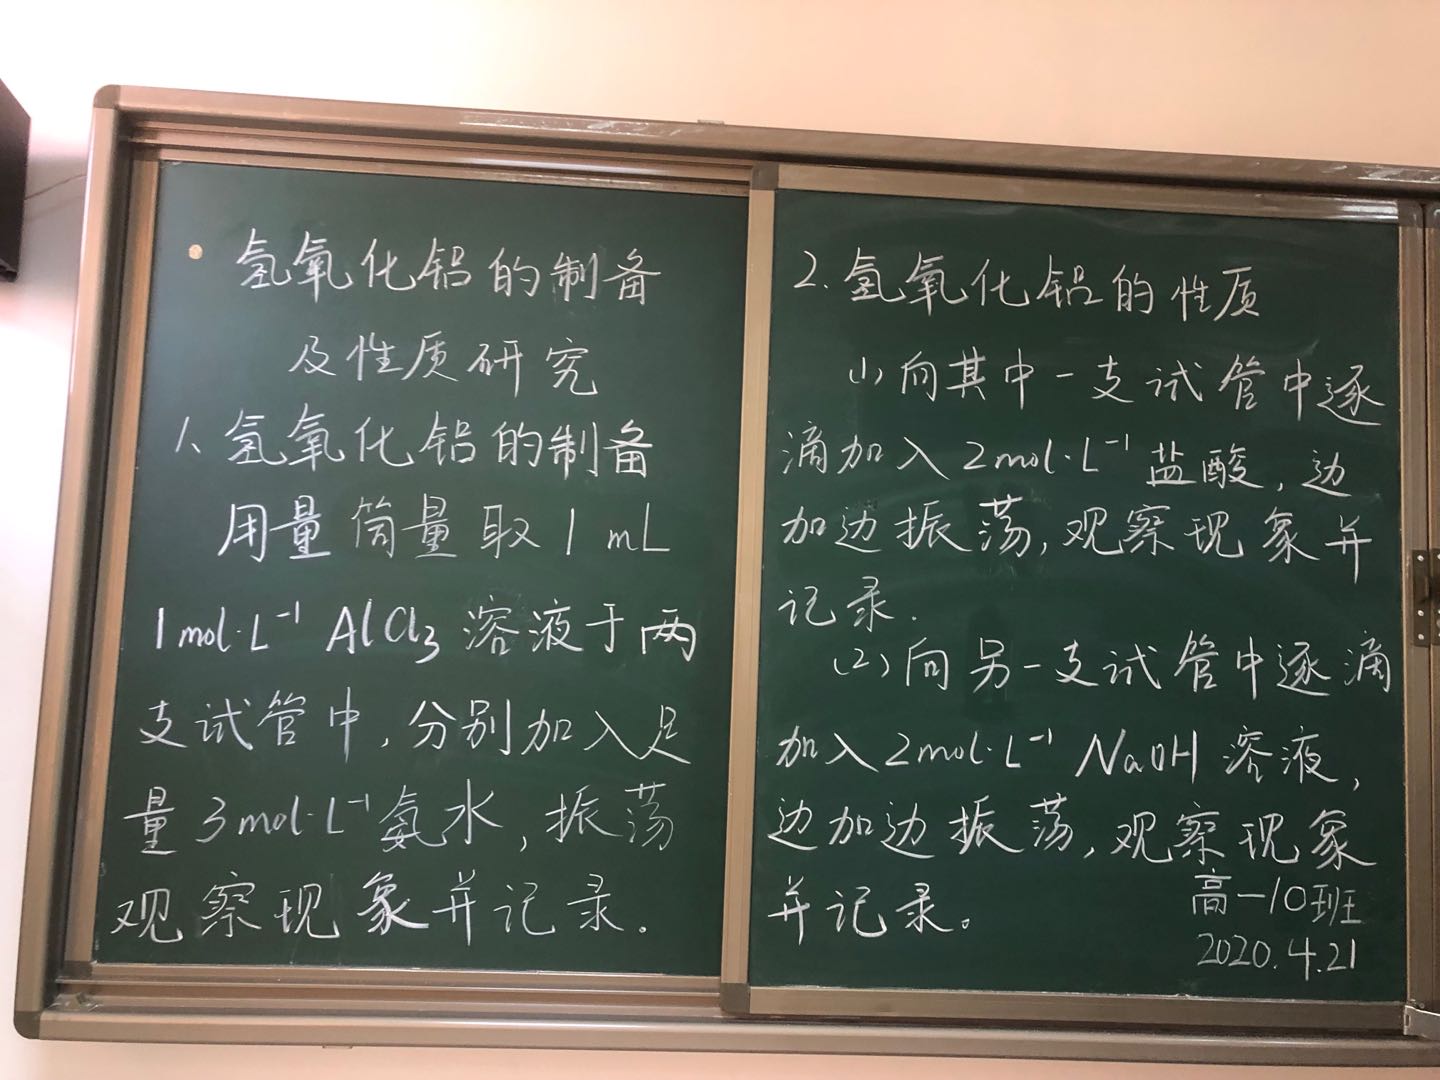 氢氧化铝的制备
及性质研究
1、氢氧化铝的制备
用量筒量取1mL
1mol·L⁻¹ AlCl₃溶液于两
支试管中,分别加入足
量3mol·L⁻¹氨水,振荡
观察现象并记录.
2.氢氧化铝的性质
(1)向其中一支试管中逐
滴加入2mol·L⁻¹盐酸,边
加边振荡,观察现象并
记录.
(2)向另一支试管中逐滴
加入2mol·L⁻¹ NaOH溶液,
边加边振荡,观察现象
并记录。
高一10班
2020.4.21